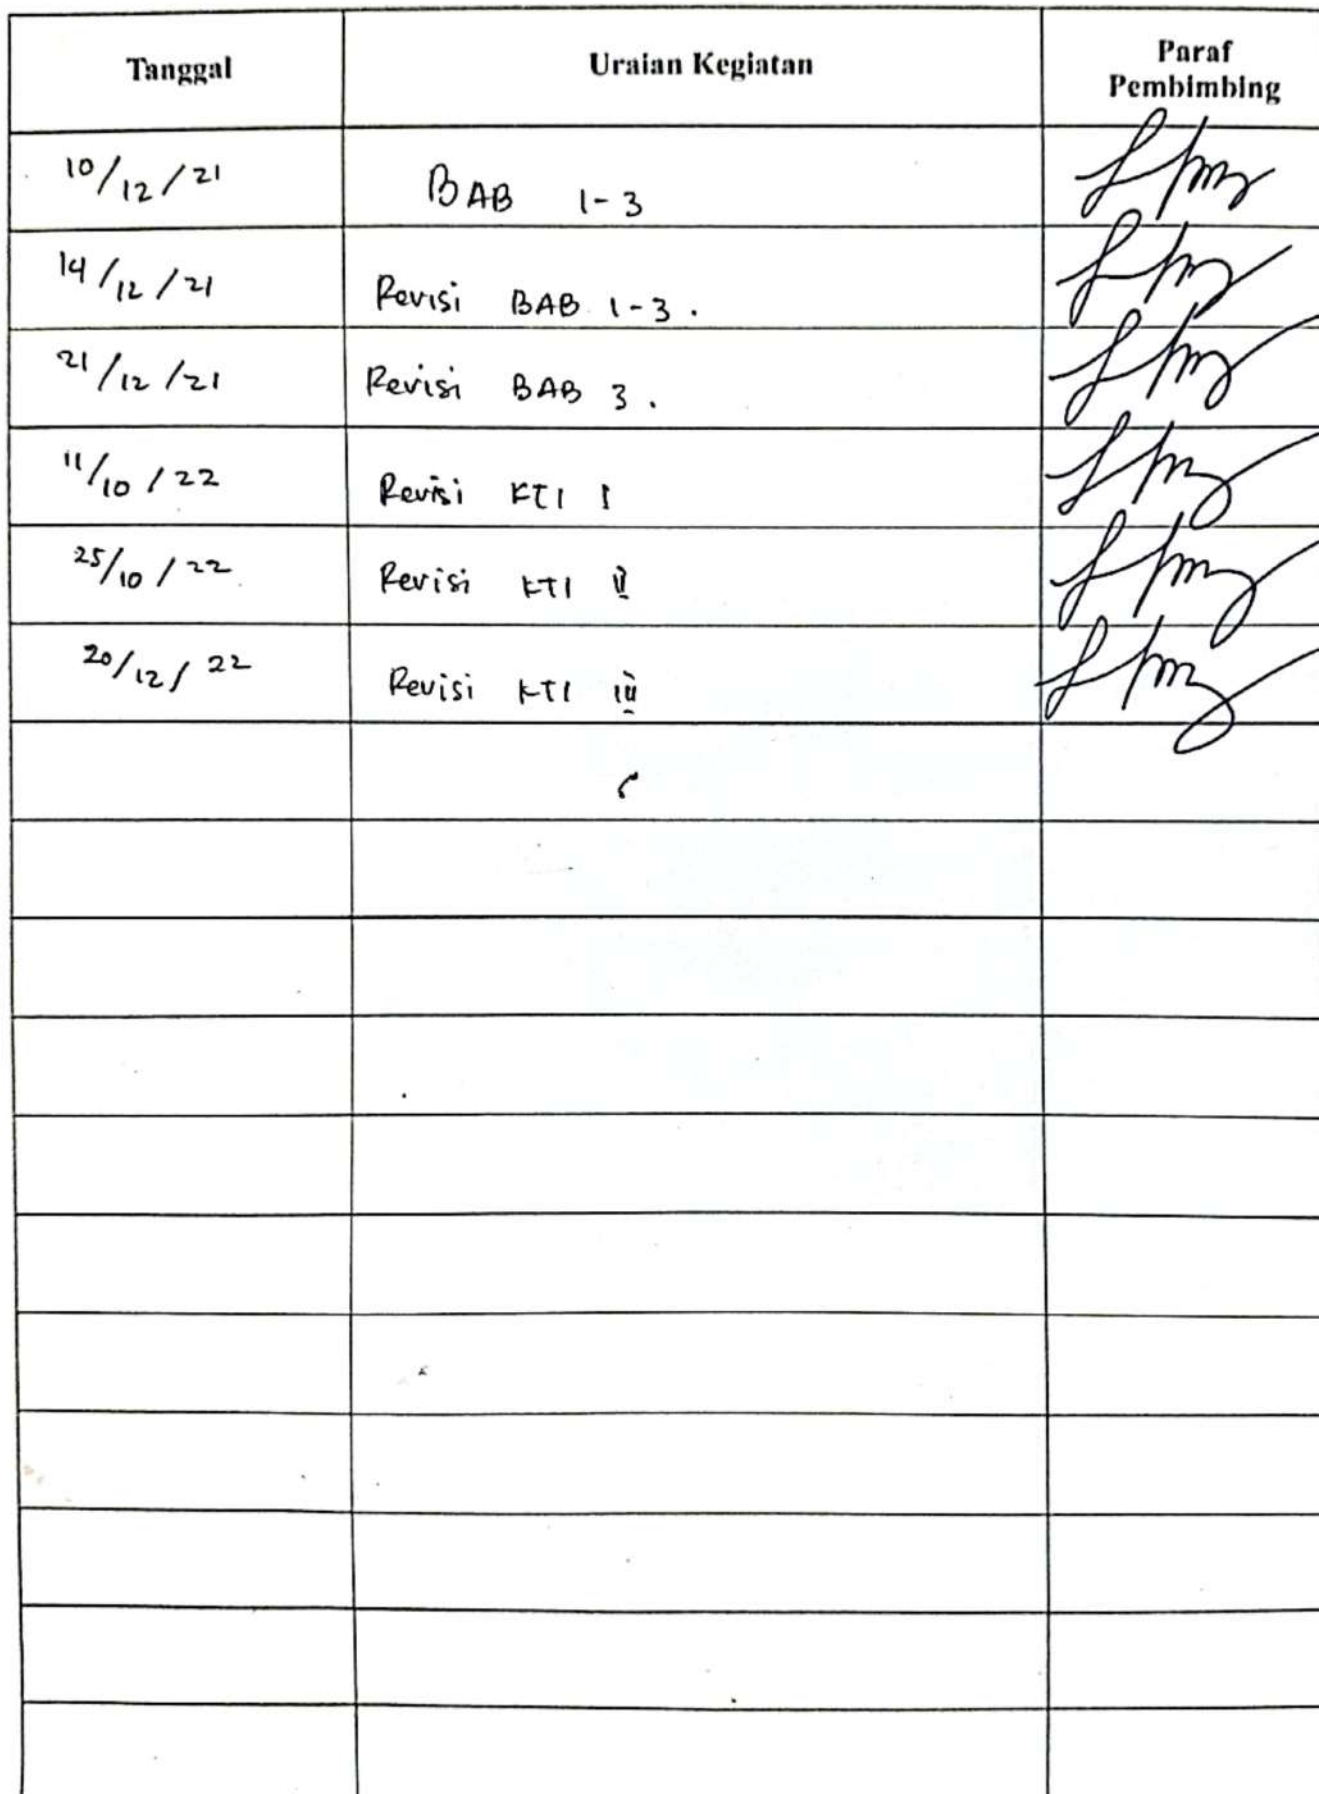 Tanggal Uraian Kegiatan Paraf
Pembimbing
10/12/21 BAB 1-3
14/12/21 Revisi BAB 1-3.
21/12/21 Revisi BAB 3.
11/10/22 Revisi KTI I
25/10/22 Revisi KTI II
20/12/22 Revisi KTI III